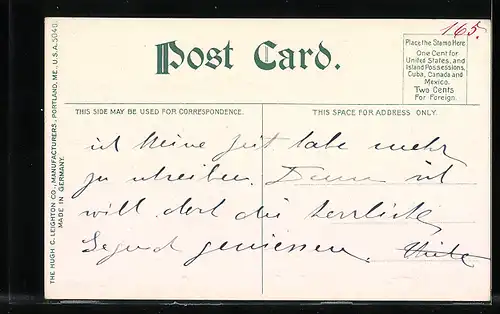 165.
Post Card.
Place the Stamp Here
One Cent for
United States, and
Island Possessions,
Cuba, Canada and
Mexico.
Two Cents
For Foreign.
THIS SIDE MAY BE USED FOR CORRESPONDENCE.
THIS SPACE FOR ADDRESS ONLY.
ich keine Zeit habe mehr
zu schreiben. Denn ich
will dort die herrliche
Gegend geniessen.
THE HUGH C. LEIGHTON CO., MANUFACTURERS, PORTLAND, ME., U.S.A.
MADE IN GERMANY.